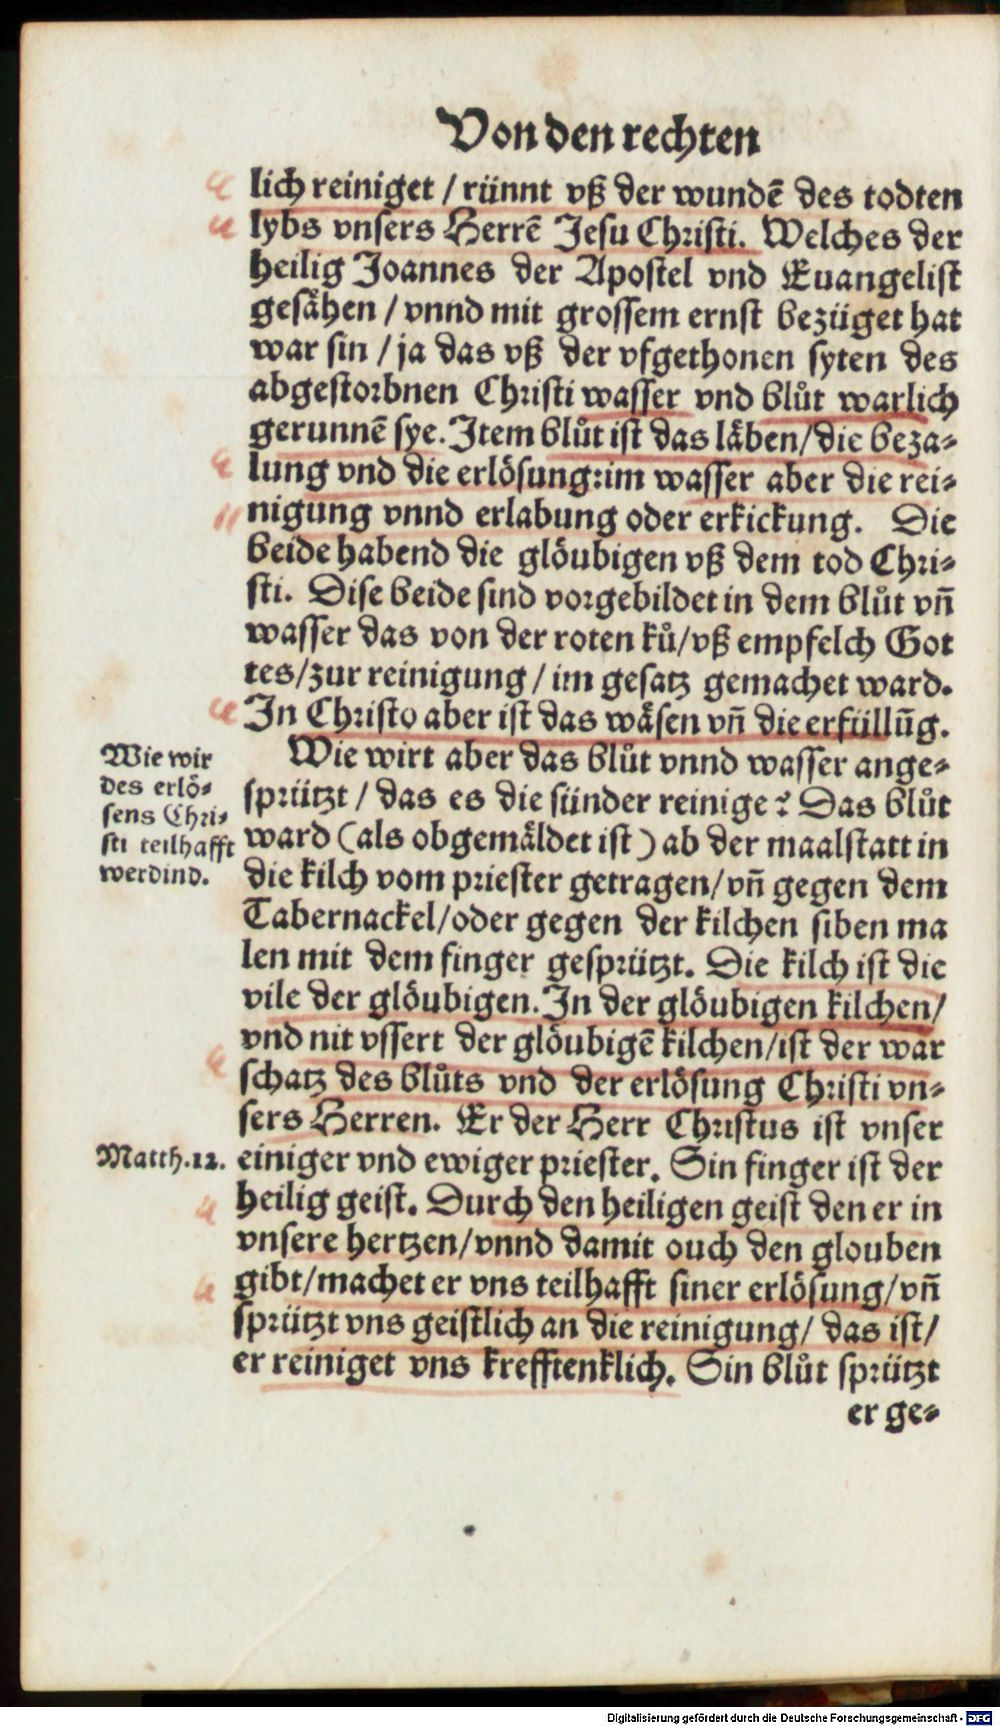 Von den rechten
lich reiniget / rünnt vß der wundẽ des todten
lybs vnsers Herrẽ Jesu Christi. Welches der
heilig Joannes der Apostel vnd Euangelist
gesähen / vnnd mit grossem ernst bezüget hat
war sin / ja das vß der vfgethonen syten des
abgestorbnen Christi wasser vnd blůt warlich
gerunnẽ sye. Item blůt ist das läben/die beza-
lung vnd die erlösung:im wasser aber die rei-
nigung vnnd erlabung oder erkickung. Die
beide habend die glöubigen vß dem tod Chri-
sti. Dise beide sind vorgebildet in dem blůt vñ
wasser das von der roten ků/vß empfelch Got
tes/zur reinigung / im gesatz gemachet ward.
In Christo aber ist das wäsen vñ die erfüllũg.
Wie wir
des erlö-
sens Chri-
sti teilhafft
werdind.
Wie wirt aber das blůt vnnd wasser ange-
sprützt / das es die sünder reinige? Das blůt
ward (als obgemäldet ist) ab der maalstatt in
die kilch vom priester getragen/vñ gegen dem
Tabernackel/oder gegen der kilchen siben ma
len mit dem finger gesprützt. Die kilch ist die
vile der glöubigen. In der glöubigen kilchen/
vnd nit vssert der glöubigẽ kilchen/ist der war
schatz des blůts vnd der erlösung Christi vn-
sers Herren. Er der Herr Christus ist vnser
Matth.12.
einiger vnd ewiger priester. Sin finger ist der
heilig geist. Durch den heiligen geist den er in
vnsere hertzen/vnnd damit ouch den glouben
gibt/machet er vns teilhafft siner erlösung/vñ
sprützt vns geistlich an die reinigung/ das ist/
er reiniget vns krefftenklich. Sin blůt sprützt
er ge-
Digitalisierung gefördert durch die Deutsche Forschungsgemeinschaft - DFG